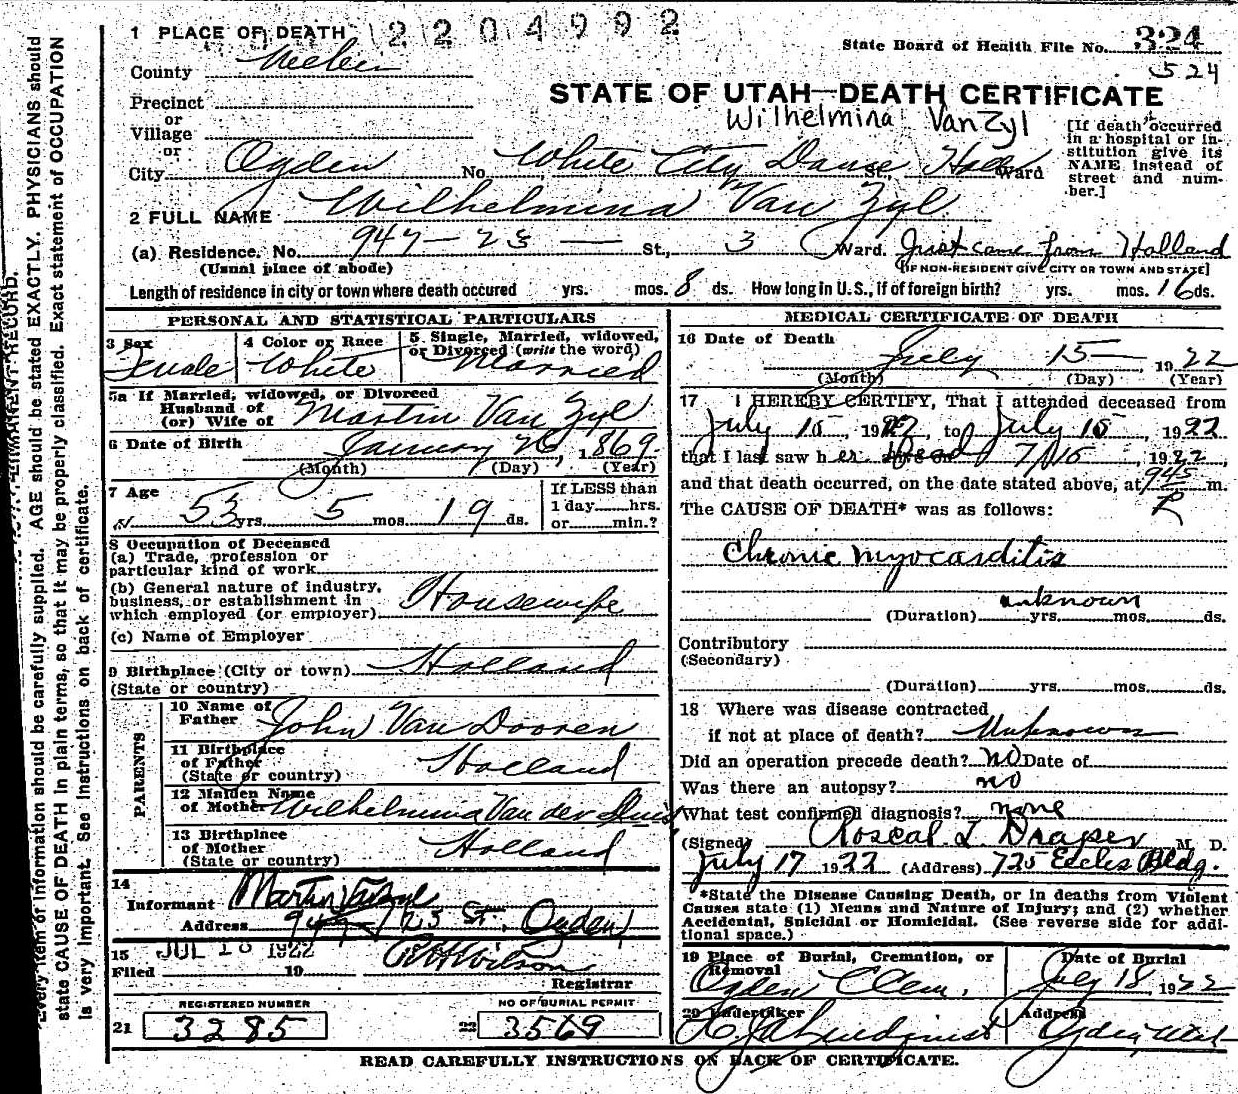 1 PLACE OF DEATH 2204992
State Board of Health File No. 324
524
County Weber
STATE OF UTAH—DEATH CERTIFICATE
Wilhelmina VanZyl
Precinct
or
Village
or
City Ogden No. White City Danse St. Hall Ward
[If death occurred
in a hospital or in-
stitution give its
NAME instead of
street and num-
ber.]
2 FULL NAME Wilhelmina Van Zyl
(a) Residence. No. 947-23 St., 3 Ward. Just came from Holland
(Usual place of abode) [IF NON-RESIDENT GIVE CITY OR TOWN AND STATE]
Length of residence in city or town where death occured yrs. mos. 8 ds. How long in U.S., if of foreign birth? yrs. mos. 16 ds.
PERSONAL AND STATISTICAL PARTICULARS
3 Sex
Female
4 Color or Race
White
5 Single, Married, widowed,
or Divorced (write the word)
Married
5a If Married, widowed, or Divorced
Husband of
(or) Wife of Martin Van Zyl
6 Date of Birth January 26, 1869
(Month) (Day) (Year)
7 Age
53 yrs. 5 mos. 19 ds.
If LESS than
1 day hrs.
or min.?
8 Occupation of Deceased
(a) Trade, profession or
particular kind of work
(b) General nature of industry,
business, or establishment in
which employed (or employer) Housewife
(c) Name of Employer
9 Birthplace (City or town) Holland
(State or country)
PARENTS
10 Name of
Father John Van Dooren
11 Birthplace
of Father Holland
(State or country)
12 Maiden Name
of Mother Wilhelmina Van der Sluis
13 Birthplace
of Mother Holland
(State or country)
14
Informant Martin VanZyl
Address 947 / 23 St. Ogden
15 JUL 18 1922
Filed 19 Wilson
Registrar
REGISTERED NUMBER
21 3285
NO OF BURIAL PERMIT
22 3569
MEDICAL CERTIFICATE OF DEATH
16 Date of Death
July 15 1922
(Month) (Day) (Year)
17 I HEREBY CERTIFY, That I attended deceased from
July 15, 1922, to July 15 1922
that I last saw her 7/15, 1922,
and that death occurred, on the date stated above, at 945 m.
P
The CAUSE OF DEATH* was as follows:
Chronic myocarditis
unknown
(Duration) yrs. mos. ds.
Contributory
(Secondary)
(Duration) yrs. mos. ds.
18 Where was disease contracted
if not at place of death? Unknown
Did an operation precede death? no Date of
Was there an autopsy? no
What test confirmed diagnosis? none
(Signed) Draper M. D.
July 17 1922 (Address) 725 Eccles Bldg.
*State the Disease Causing Death, or in deaths from Violent
Causes state (1) Means and Nature of Injury; and (2) whether
Accidental, Suicidal or Homicidal. (See reverse side for addi-
tional space.)
19 Place of Burial, Cremation, or
Removal
Ogden Cem.
Date of Burial
July 18, 1922
20 Undertaker
Lindquist
Address
Ogden, Utah
READ CAREFULLY INSTRUCTIONS ON BACK OF CERTIFICATE.
PERMANENT RECORD.
Every item of information should be carefully supplied. AGE should be stated EXACTLY. PHYSICIANS should
state CAUSE OF DEATH in plain terms, so that it may be properly classified. Exact statement of OCCUPATION
is very important. See Instructions on back of certificate.